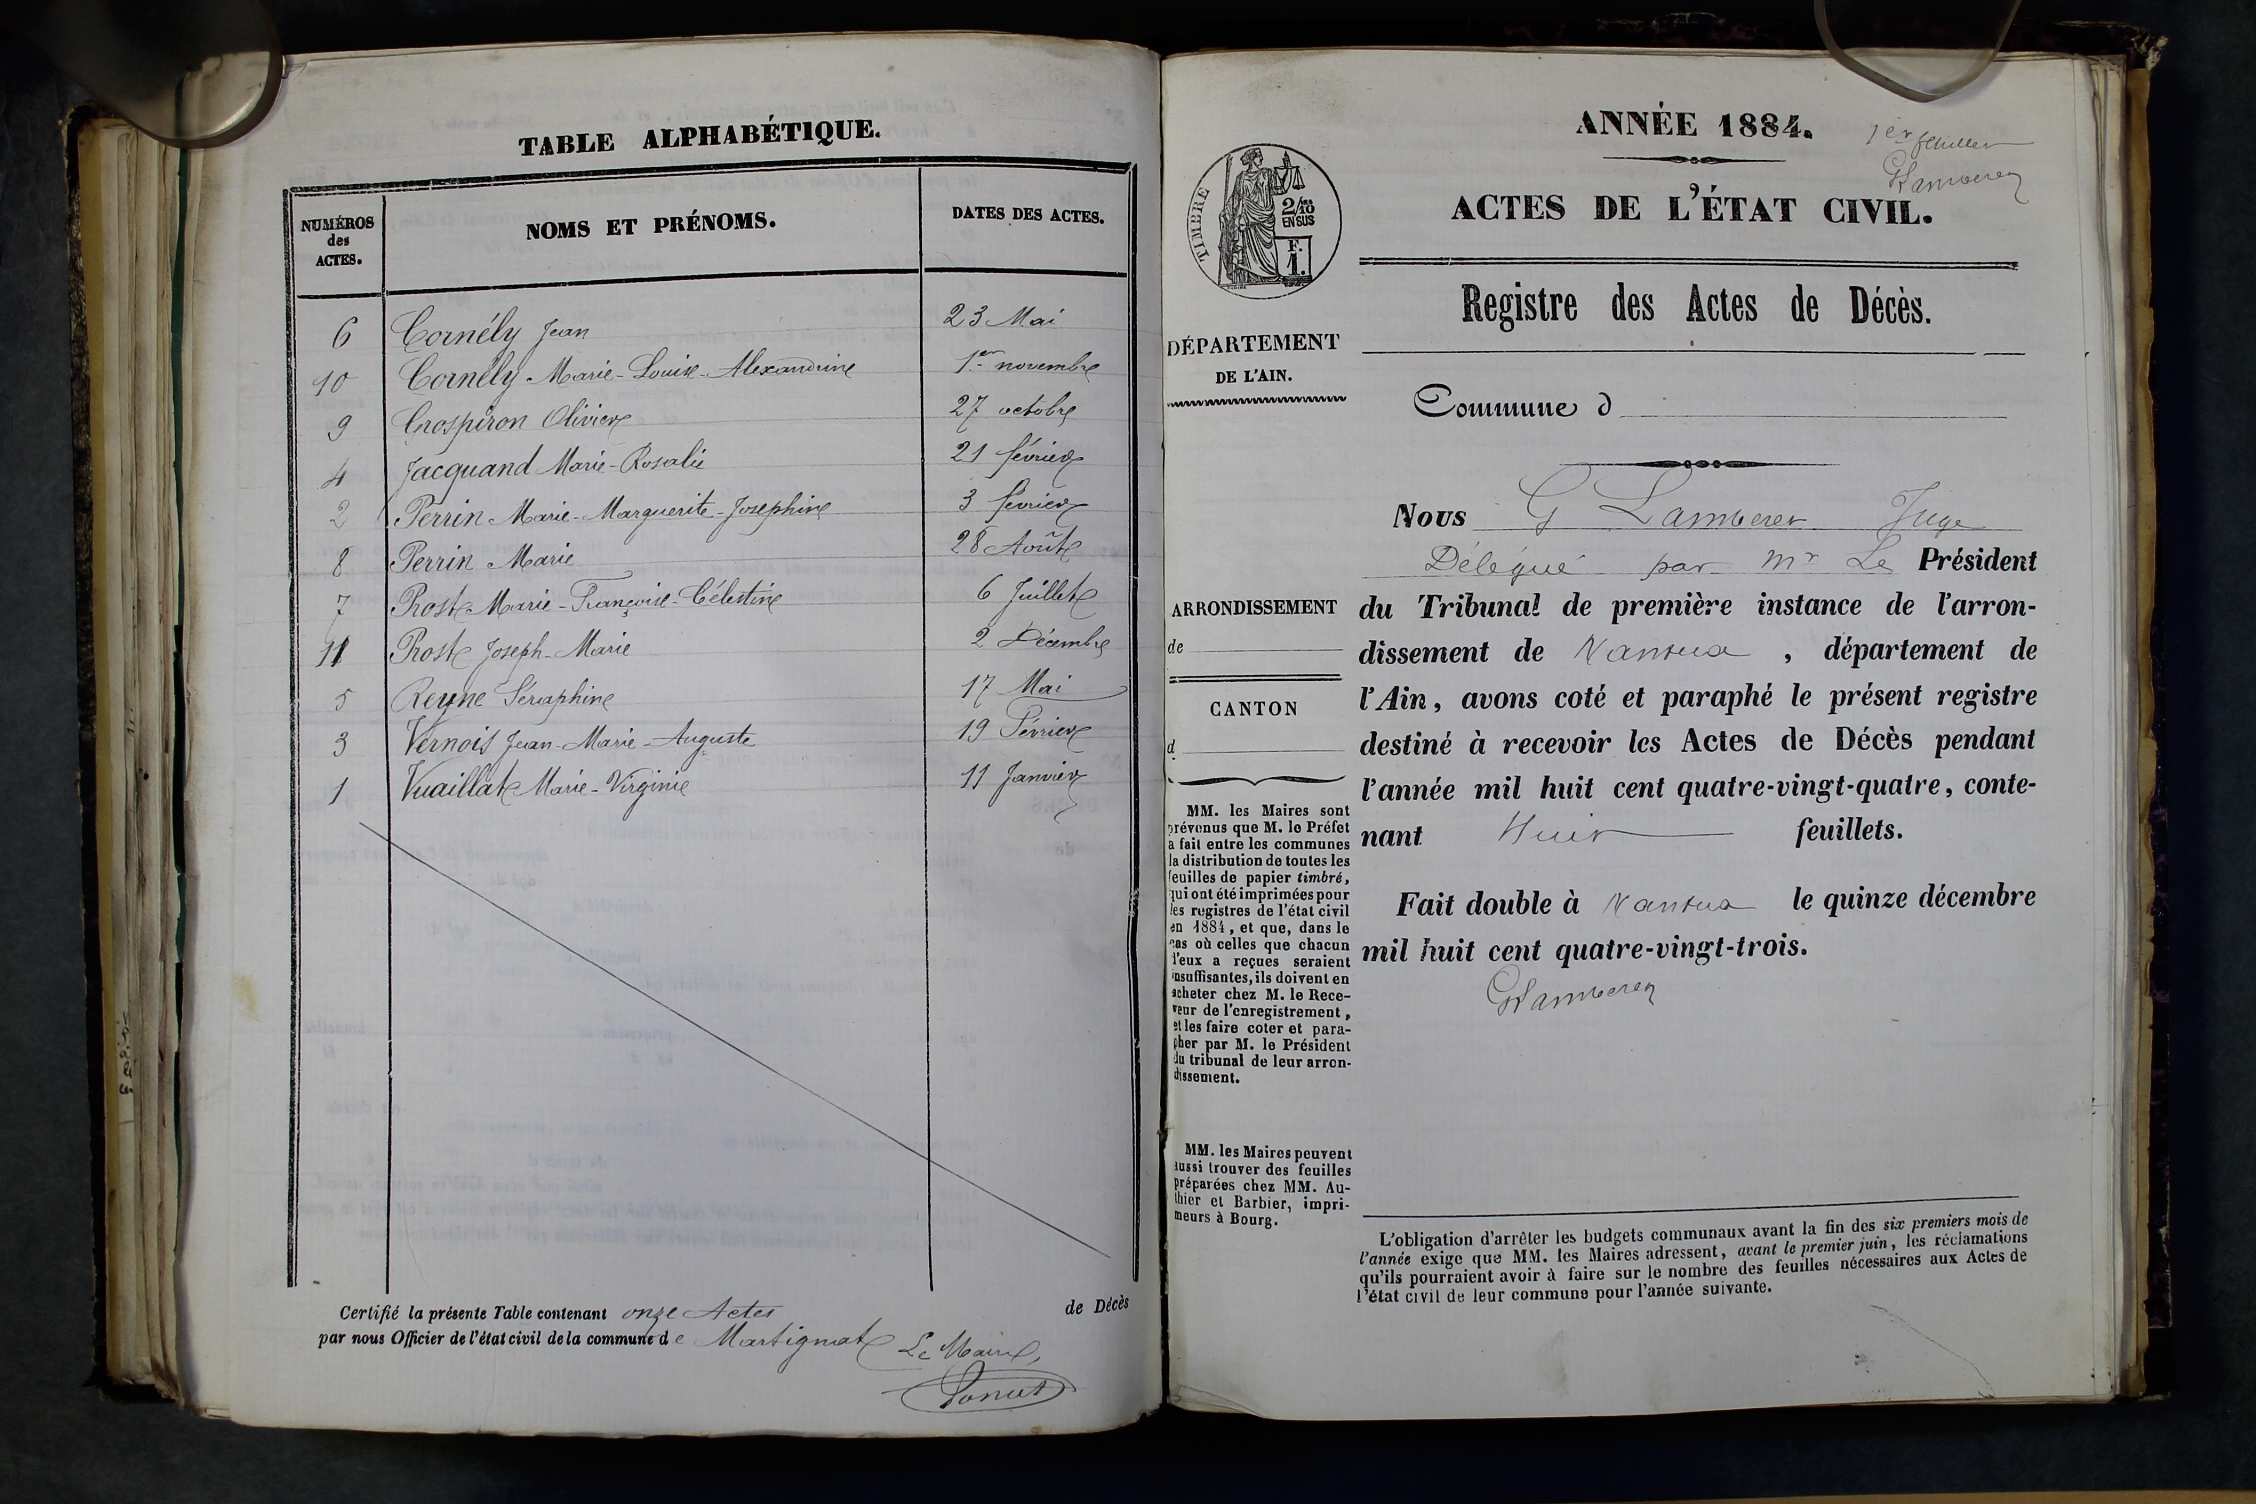 TABLE ALPHABÉTIQUE.
NUMÉROS des ACTES. NOMS ET PRÉNOMS. DATES DES ACTES.
6 Cornély Jean 23 Mai
10 Cornély Marie-Louise-Alexandrine 1er novembre
9 Crospiron Olivier 27 octobre
4 Jacquand Marie-Rosalie 21 février
2 Perrin Marie-Marguerite-Josephine 3 février
8 Perrin Marie 28 Août
7 Prost Marie-Françoise-Célestine 6 Juillet
11 Prost Joseph-Marie 2 Décembre
5 Reyne Séraphine 17 Mai
3 Vernois Jean-Marie-Auguste 19 Février
1 Vuaillat Marie-Virginie 11 Janvier
Certifié la présente Table contenant onze Actes de Décès
par nous Officier de l'état civil de la commune de Martignat
Le Maire,
ANNÉE 1884.
1er feuillet
GLamberet
ACTES DE L'ÉTAT CIVIL.
TIMBRE
2/10
EN SUS
F.
1.
Registre des Actes de Décès.
DÉPARTEMENT
DE L'AIN.
Commune d
Nous G Lamberet Juge
Délégué par Mr Le Président
du Tribunal de première instance de l'arron-
dissement de Nantua, département de
l'Ain, avons coté et paraphé le présent registre
destiné à recevoir les Actes de Décès pendant
l'année mil huit cent quatre-vingt-quatre, conte-
nant Huit feuillets.
Fait double à Nantua le quinze décembre
mil huit cent quatre-vingt-trois.
GLamberet
ARRONDISSEMENT
de
CANTON
d
MM. les Maires sont
prévenus que M. le Préfet
a fait entre les communes
la distribution de toutes les
feuilles de papier timbré,
qui ont été imprimées pour
les registres de l'état civil
en 1884, et que, dans le
cas où celles que chacun
d'eux a reçues seraient
insuffisantes, ils doivent en
acheter chez M. le Rece-
veur de l'enregistrement,
et les faire coter et para-
pher par M. le Président
du tribunal de leur arron-
dissement.
MM. les Maires peuvent
aussi trouver des feuilles
préparées chez MM. Au-
thier et Barbier, impri-
meurs à Bourg.
L'obligation d'arrêter les budgets communaux avant la fin des six premiers mois de
l'année exige que MM. les Maires adressent, avant le premier juin, les réclamations
qu'ils pourraient avoir à faire sur le nombre des feuilles nécessaires aux Actes de
l'état civil de leur commune pour l'année suivante.